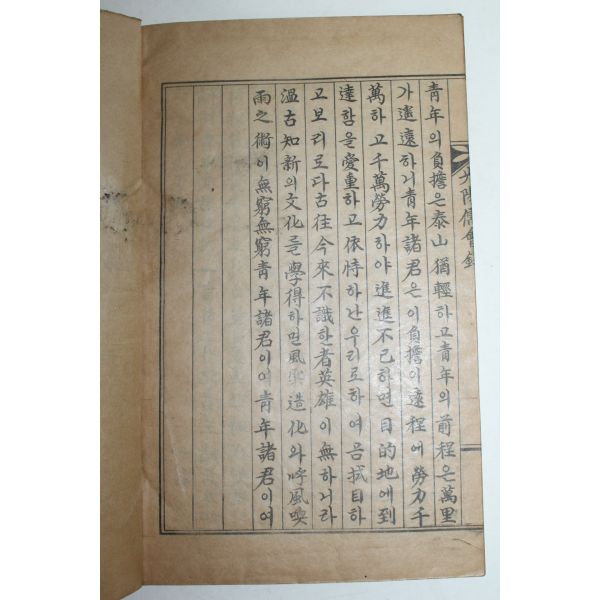 青年의負擔은泰山猶輕하고青年의前程은萬里
가遙遠하니青年諸君은이負擔이遠程에勞力千
萬하고千萬勞力하야進進不已하면目的地에到
達함을愛重하고依恃하난우리로하여금拭目하
고보리로다古往今來不識한者英雄이無하거라
溫古知新의文化를學得하면風雲造化와呼風喚
雨之術이無窮無窮青年諸君이여青年諸君이여